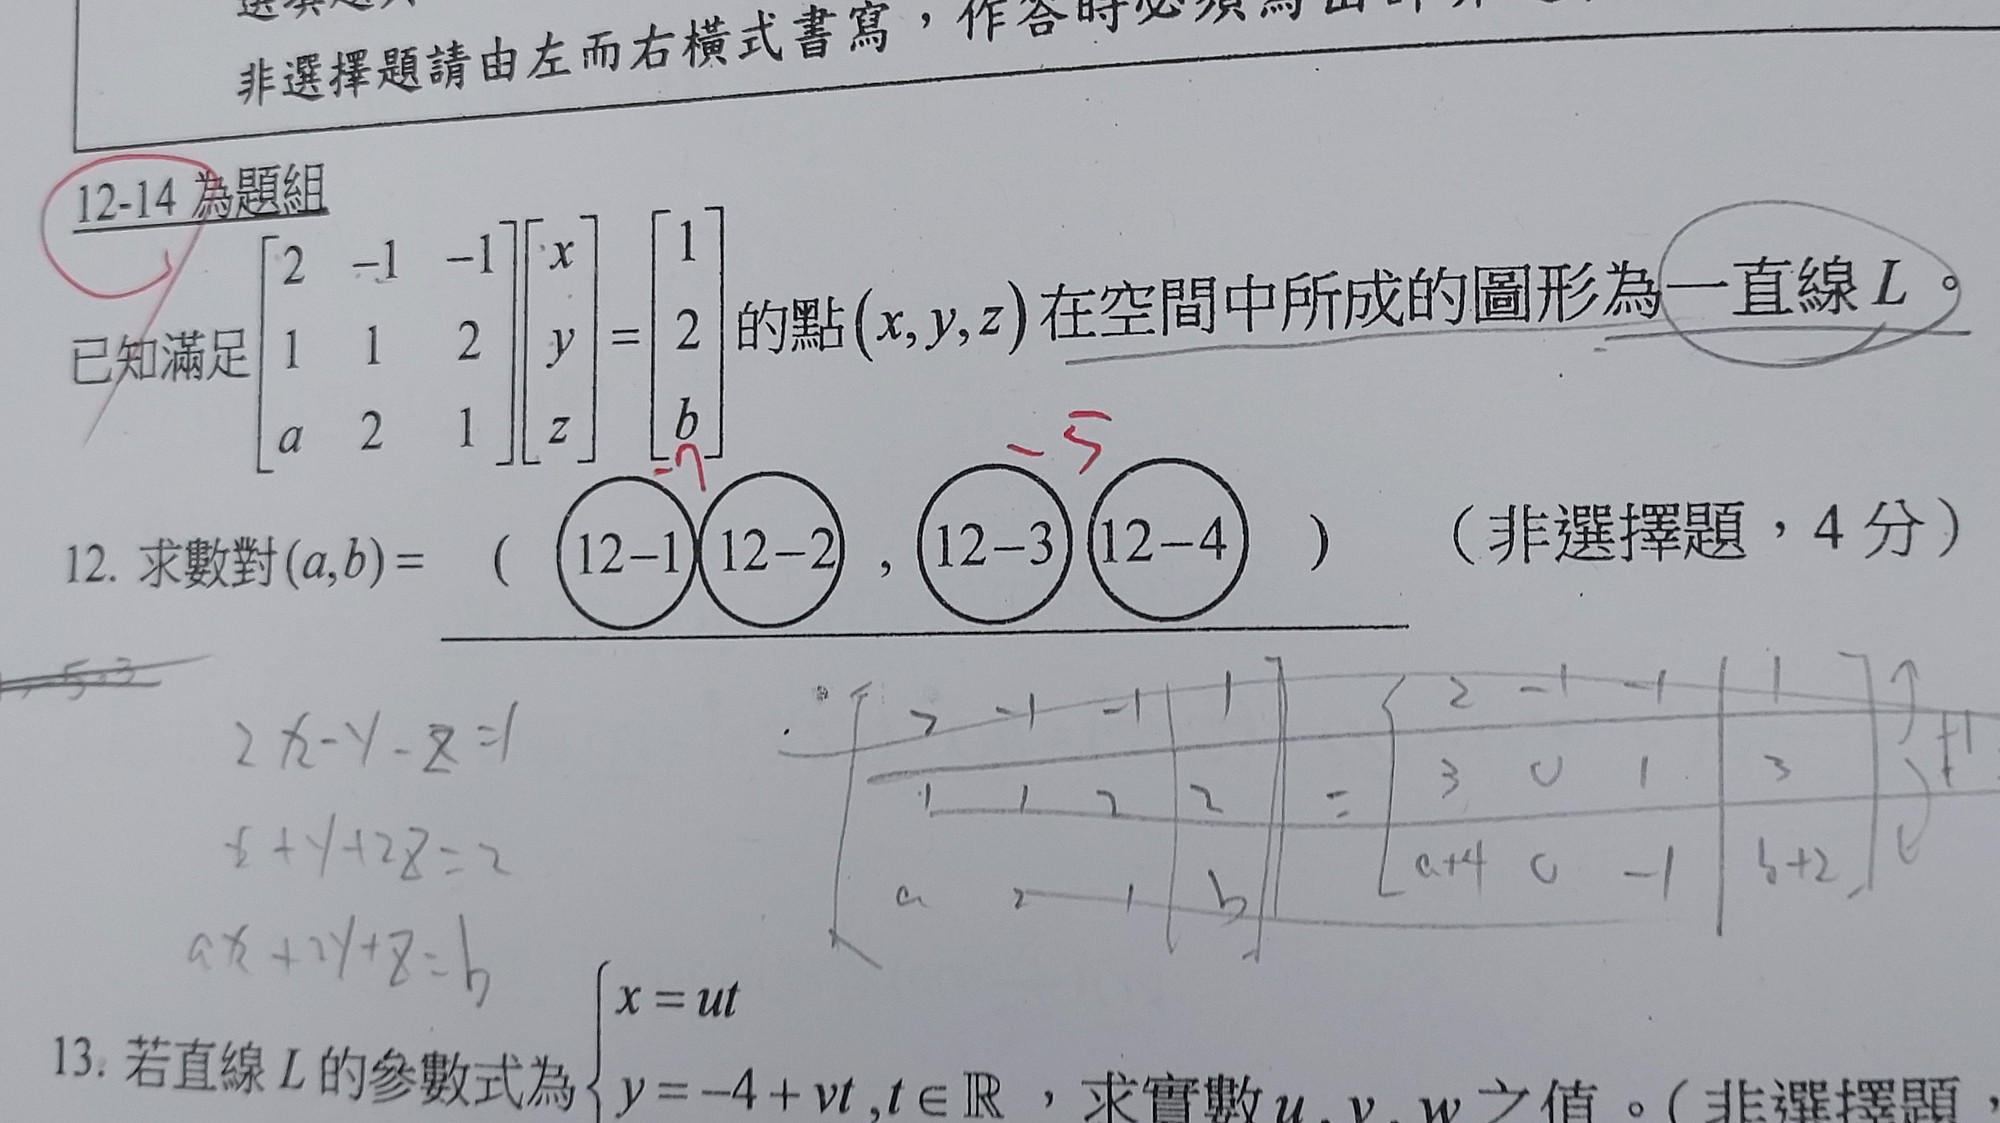 非選擇題請由左而右橫式書寫，作答時必須寫出計算
12-14 為題組
已知滿足 [2 -1 -1; 1 1 2; a 2 1] [x; y; z] = [1; 2; b] 的點(x,y,z)在空間中所成的圖形為一直線L。
-7 -5
12. 求數對(a,b)= ( 12-1 12-2 , 12-3 12-4 ) （非選擇題，4分）
2x-y-z=1
x+y+2z=2
ax+2y+z=b
[2 -1 -1 | 1; 1 1 2 | 2; a 2 1 | b] = [2 -1 -1 | 1; 3 0 1 | 3; a+4 0 -1 | b+2]
13. 若直線L的參數式為 { x=ut
y=-4+vt ,t∈ℝ ，求實數u,v,w之值。(非選擇題，